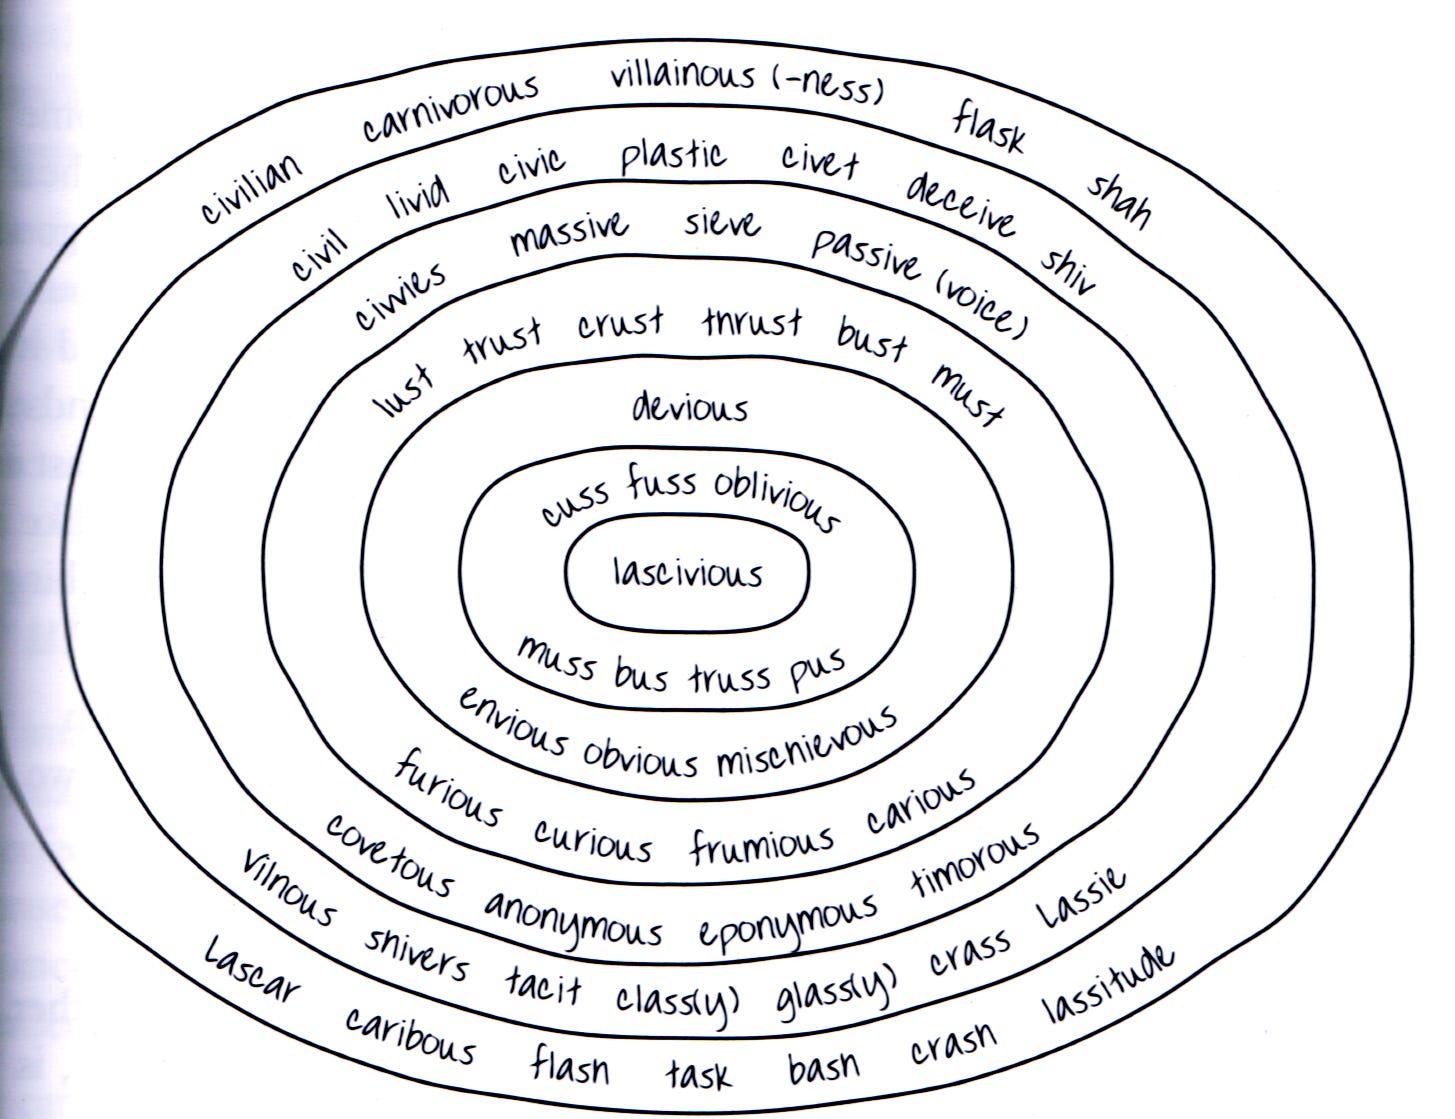 villainous (-ness)
civilian carnivorous flask shah
civil livid civic plastic civet deceive shiv
civvies massive sieve passive (voice)
lust trust crust thrust bust must
devious
cuss fuss oblivious
lascivious
muss bus truss pus
envious obvious mischievous
furious curious frumious carious
covetous anonymous eponymous timorous
vilnous shivers tacit class(y) glass(y) crass Lassie
Lascar caribous flash task bash crash lassitude